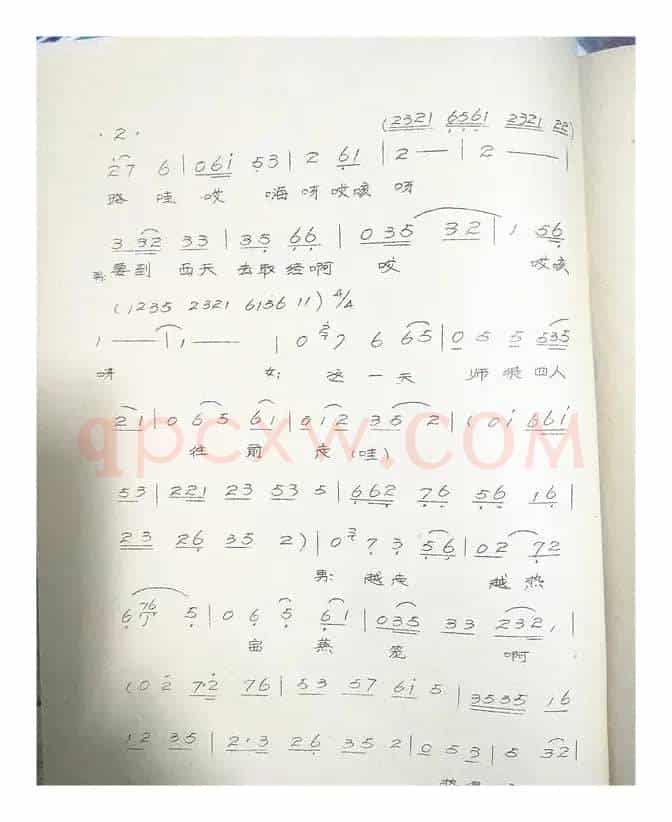 · 2 ·
(2321 6561 2321 22)
27 6 | 061 53 | 2 61 | 2 — | 2 — |
路 哇 哎 嗨 呀 哎 咳 呀
3 32 33 | 35 66 | 035 32 | 1 56
男: 要到 西天 去取 经啊 哎 哎咳
(1235 2321 6136 11) 4/4
1 — — | 1 — — | 0 7 6 65 | 0 5 5 535
呀 女: 这 一 天 师 四人
21 | 0 65 61 | 012 35 2 | (01 661
往 前 走 (哇)
qpcxw.com
53 | 221 23 53 5 | 662 76 56 16 |
23 26 35 2) | 0 7 3 56 | 02 72
男: 越走 越 热
6 76 5 | 0 6 5 61 | 035 33 232, |
蒸 笼 啊
(02 72 76 | 53 57 61 5 | 3535 16
12 35 | 2·3 26 35 2 | 0 5 3 | 5 32 |